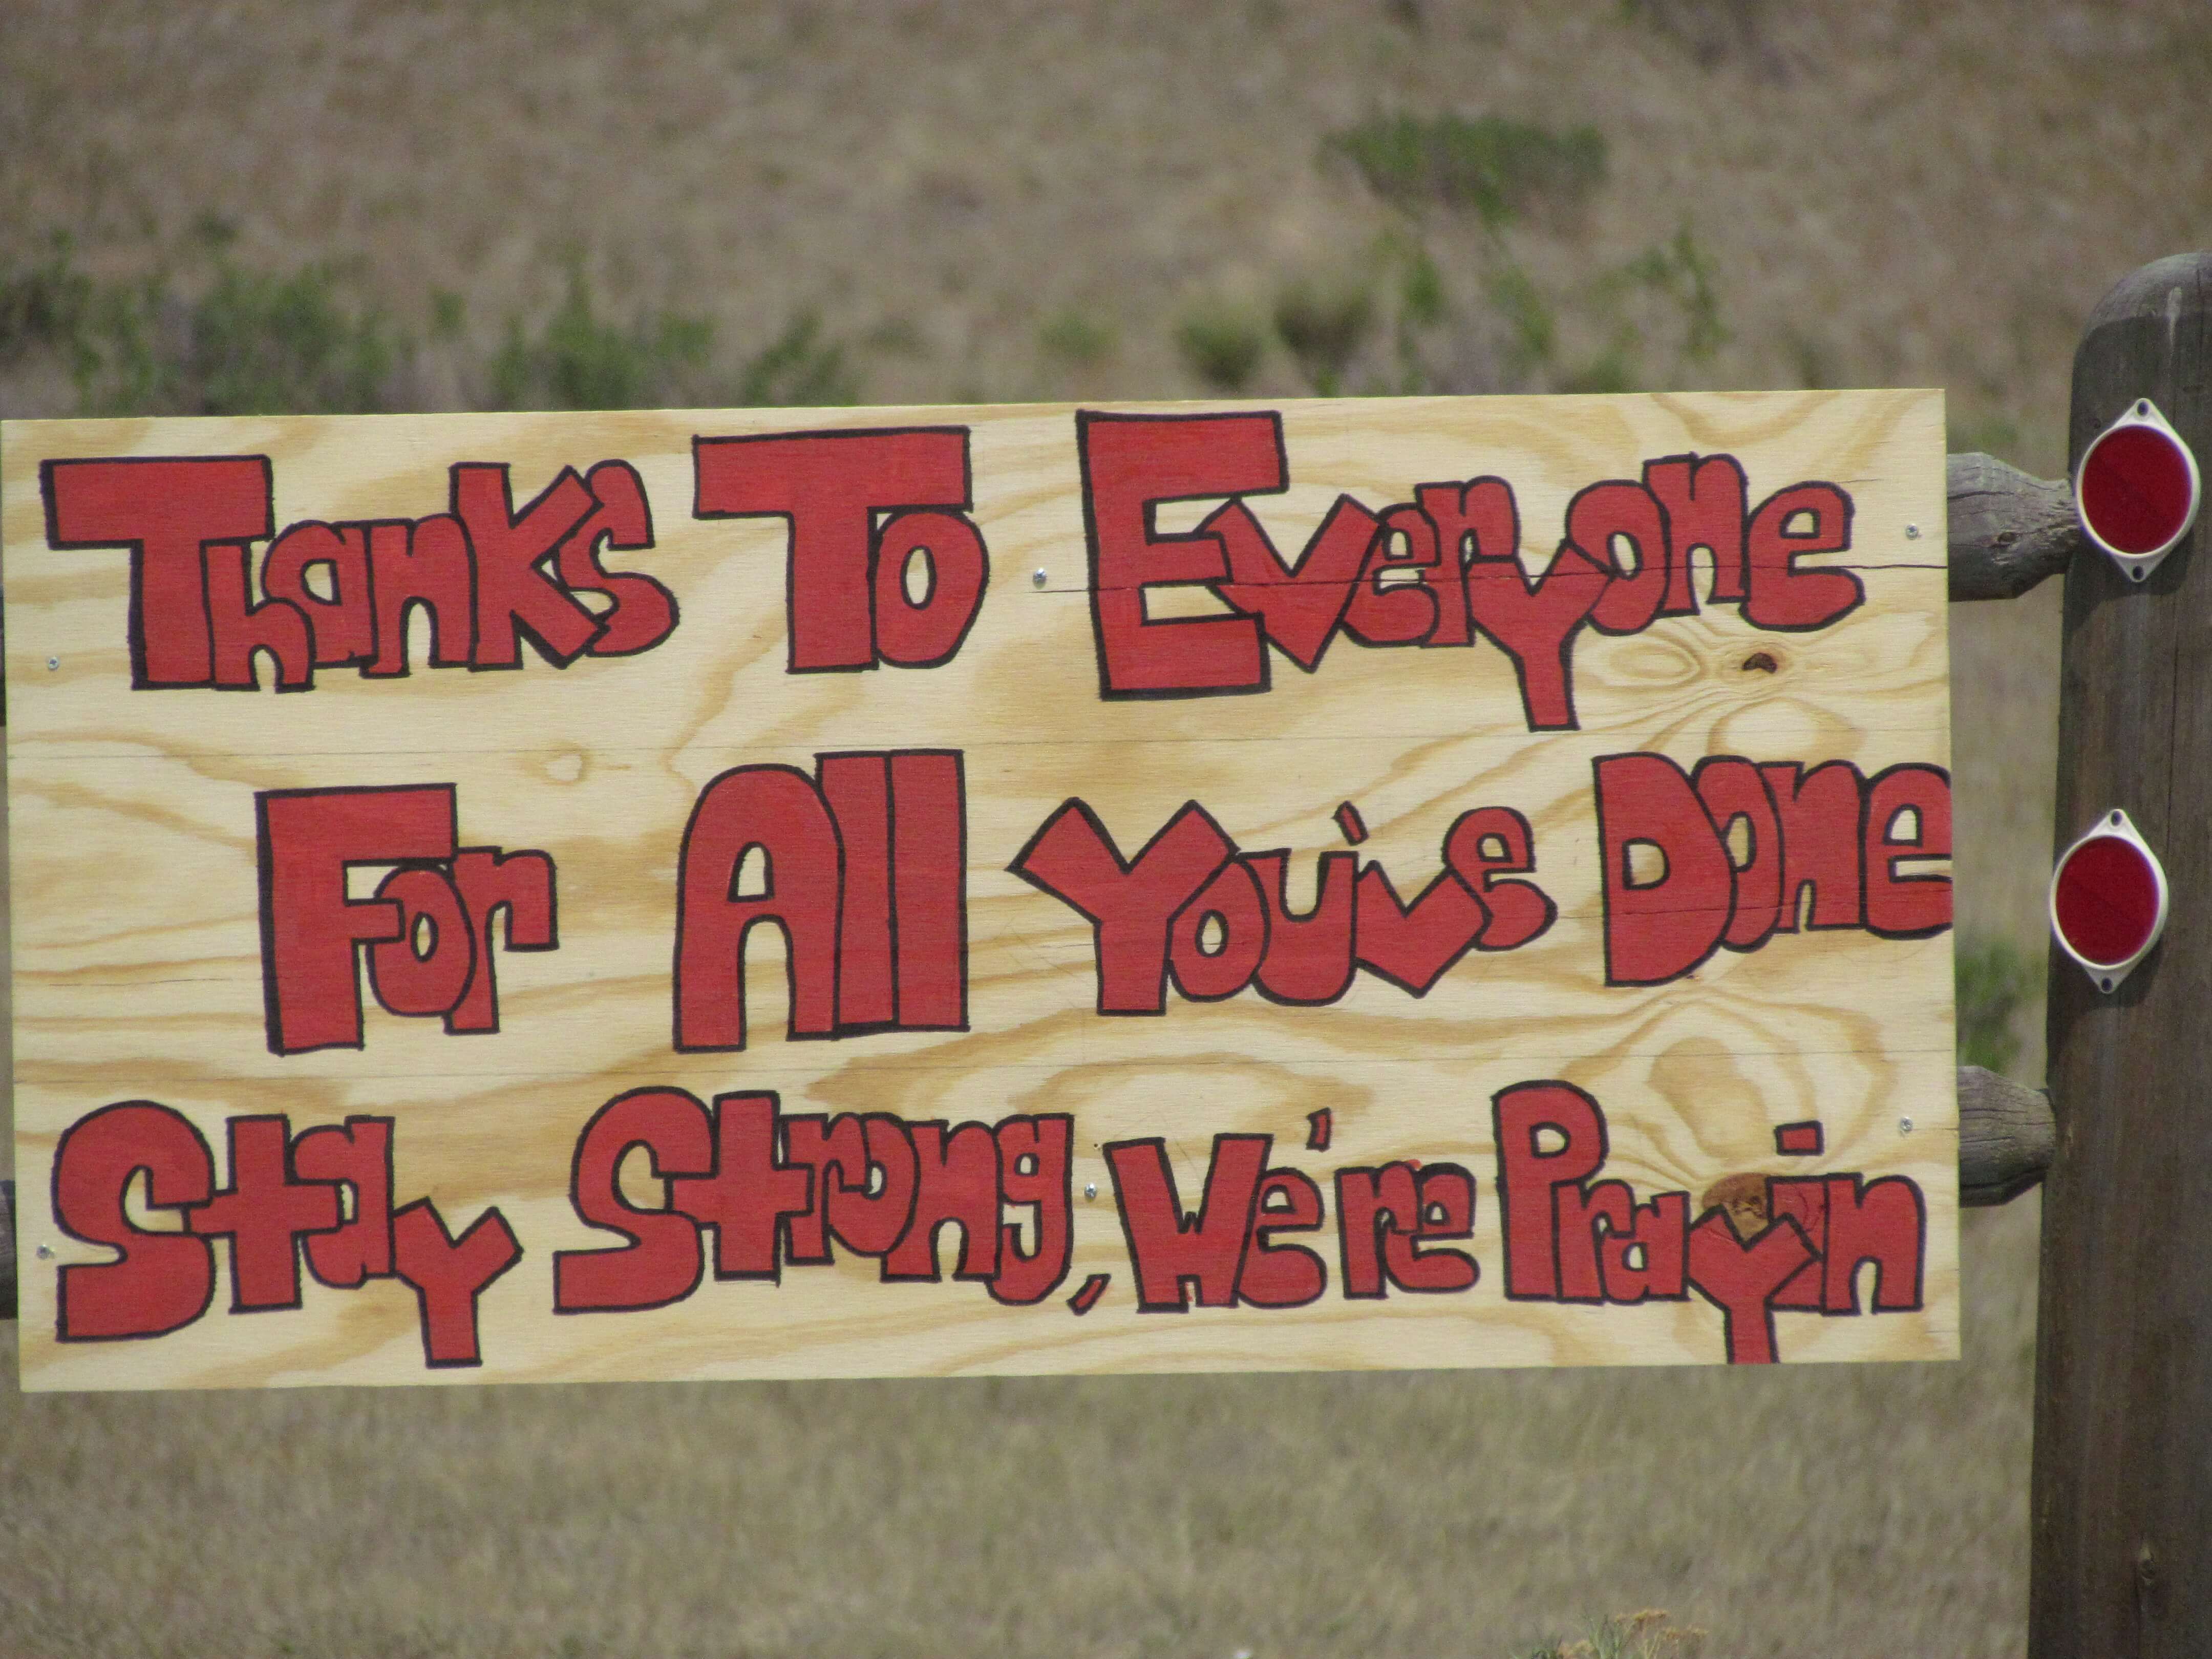 Thanks To Everyone
For All You've Done
Stay Strong, We're Prayin